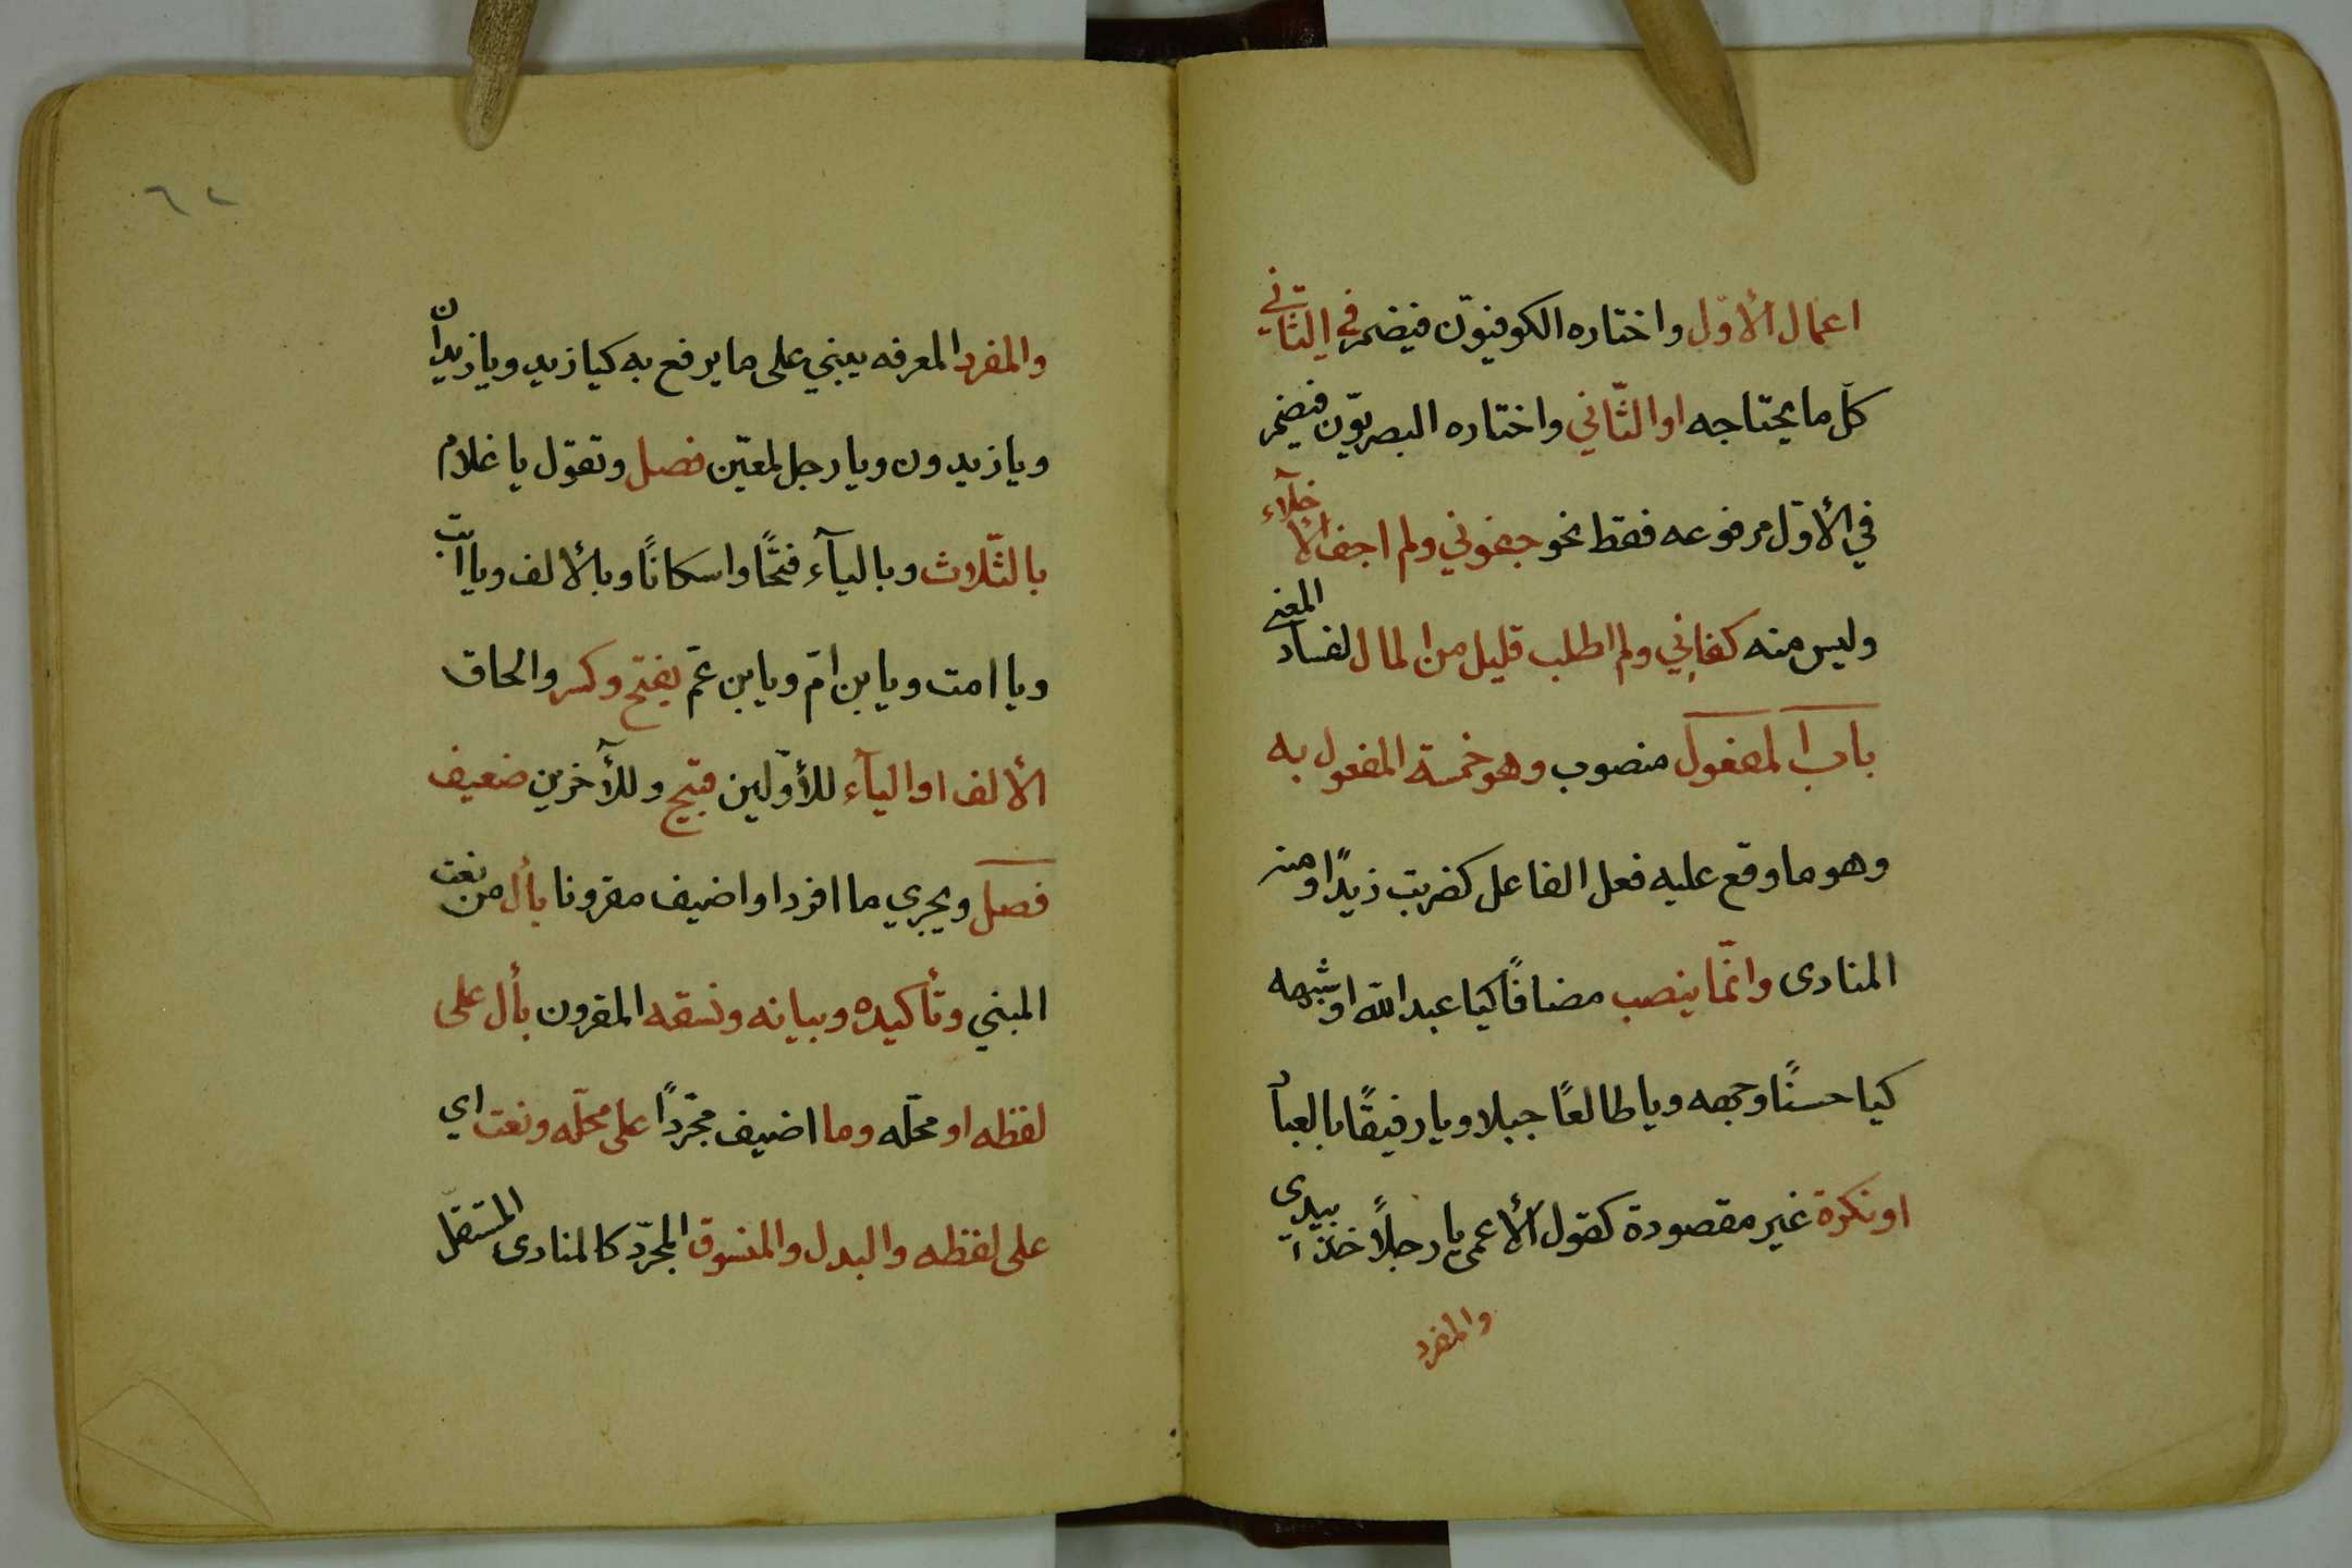 اعمال الأوّل واختاره الكوفيوّن فيضمر في الثّاني
كلّ ما يحتاجه او الثّاني واختاره البصريوّن فيضمر
في الأوّل مرفوعه فقط نحو جفوني ولم اجف الأخلّآء
وليس منه كفاني ولم اطلب قليل من المال لفساد المعنى
باب المفعول منصوب وهو خمسة المفعول به
وهو ما وقع عليه فعل الفاعل كضربت زيدًا ومنه
المنادى وانّما ينصب مضافًا كيا عبد الله او شبهه
كيا حسنًا وجهه ويا طالعًا جبلا ويا رفيقًا بالعباد
او نكرة غير مقصودة كقول الأعمى يا رجلاً خذ بيدى
والمفرد
٦٢
والمفرد المعرفه يبني على ما يرفع به كيا زيد ويا زيدان
ويا زيدون ويا رجل لمعيّن فصل وتقول يا غلام
بالثّلاث وباليآء فتحًا واسكانًا وبالألف ويا ابت
ويا امت ويا بن امّ ويا بن عمّ بفتح وكسر والحاق
الألف او اليآء للأوّلين قبيح وللآخرين ضعيف
فصل ويجري ما افرد او اضيف مقرونا بأل من نعت
المبني وتأكيده وبيانه ونسقه المقرون بأل على
لفظه او محلّه وما اضيف مجّردًا على محلّه ونعت اي
على لفظه والبدل والمنسوق المجرّد كالمنادى المستقلّ